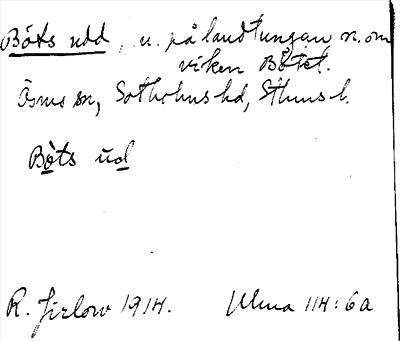 Böts udd, u. på landtungan n. om
viken Bötet.
Ösmo sn, Sotholms hd, Sthms l.
Bots ud
R. Jirlow 1914. Ulma 114:6a